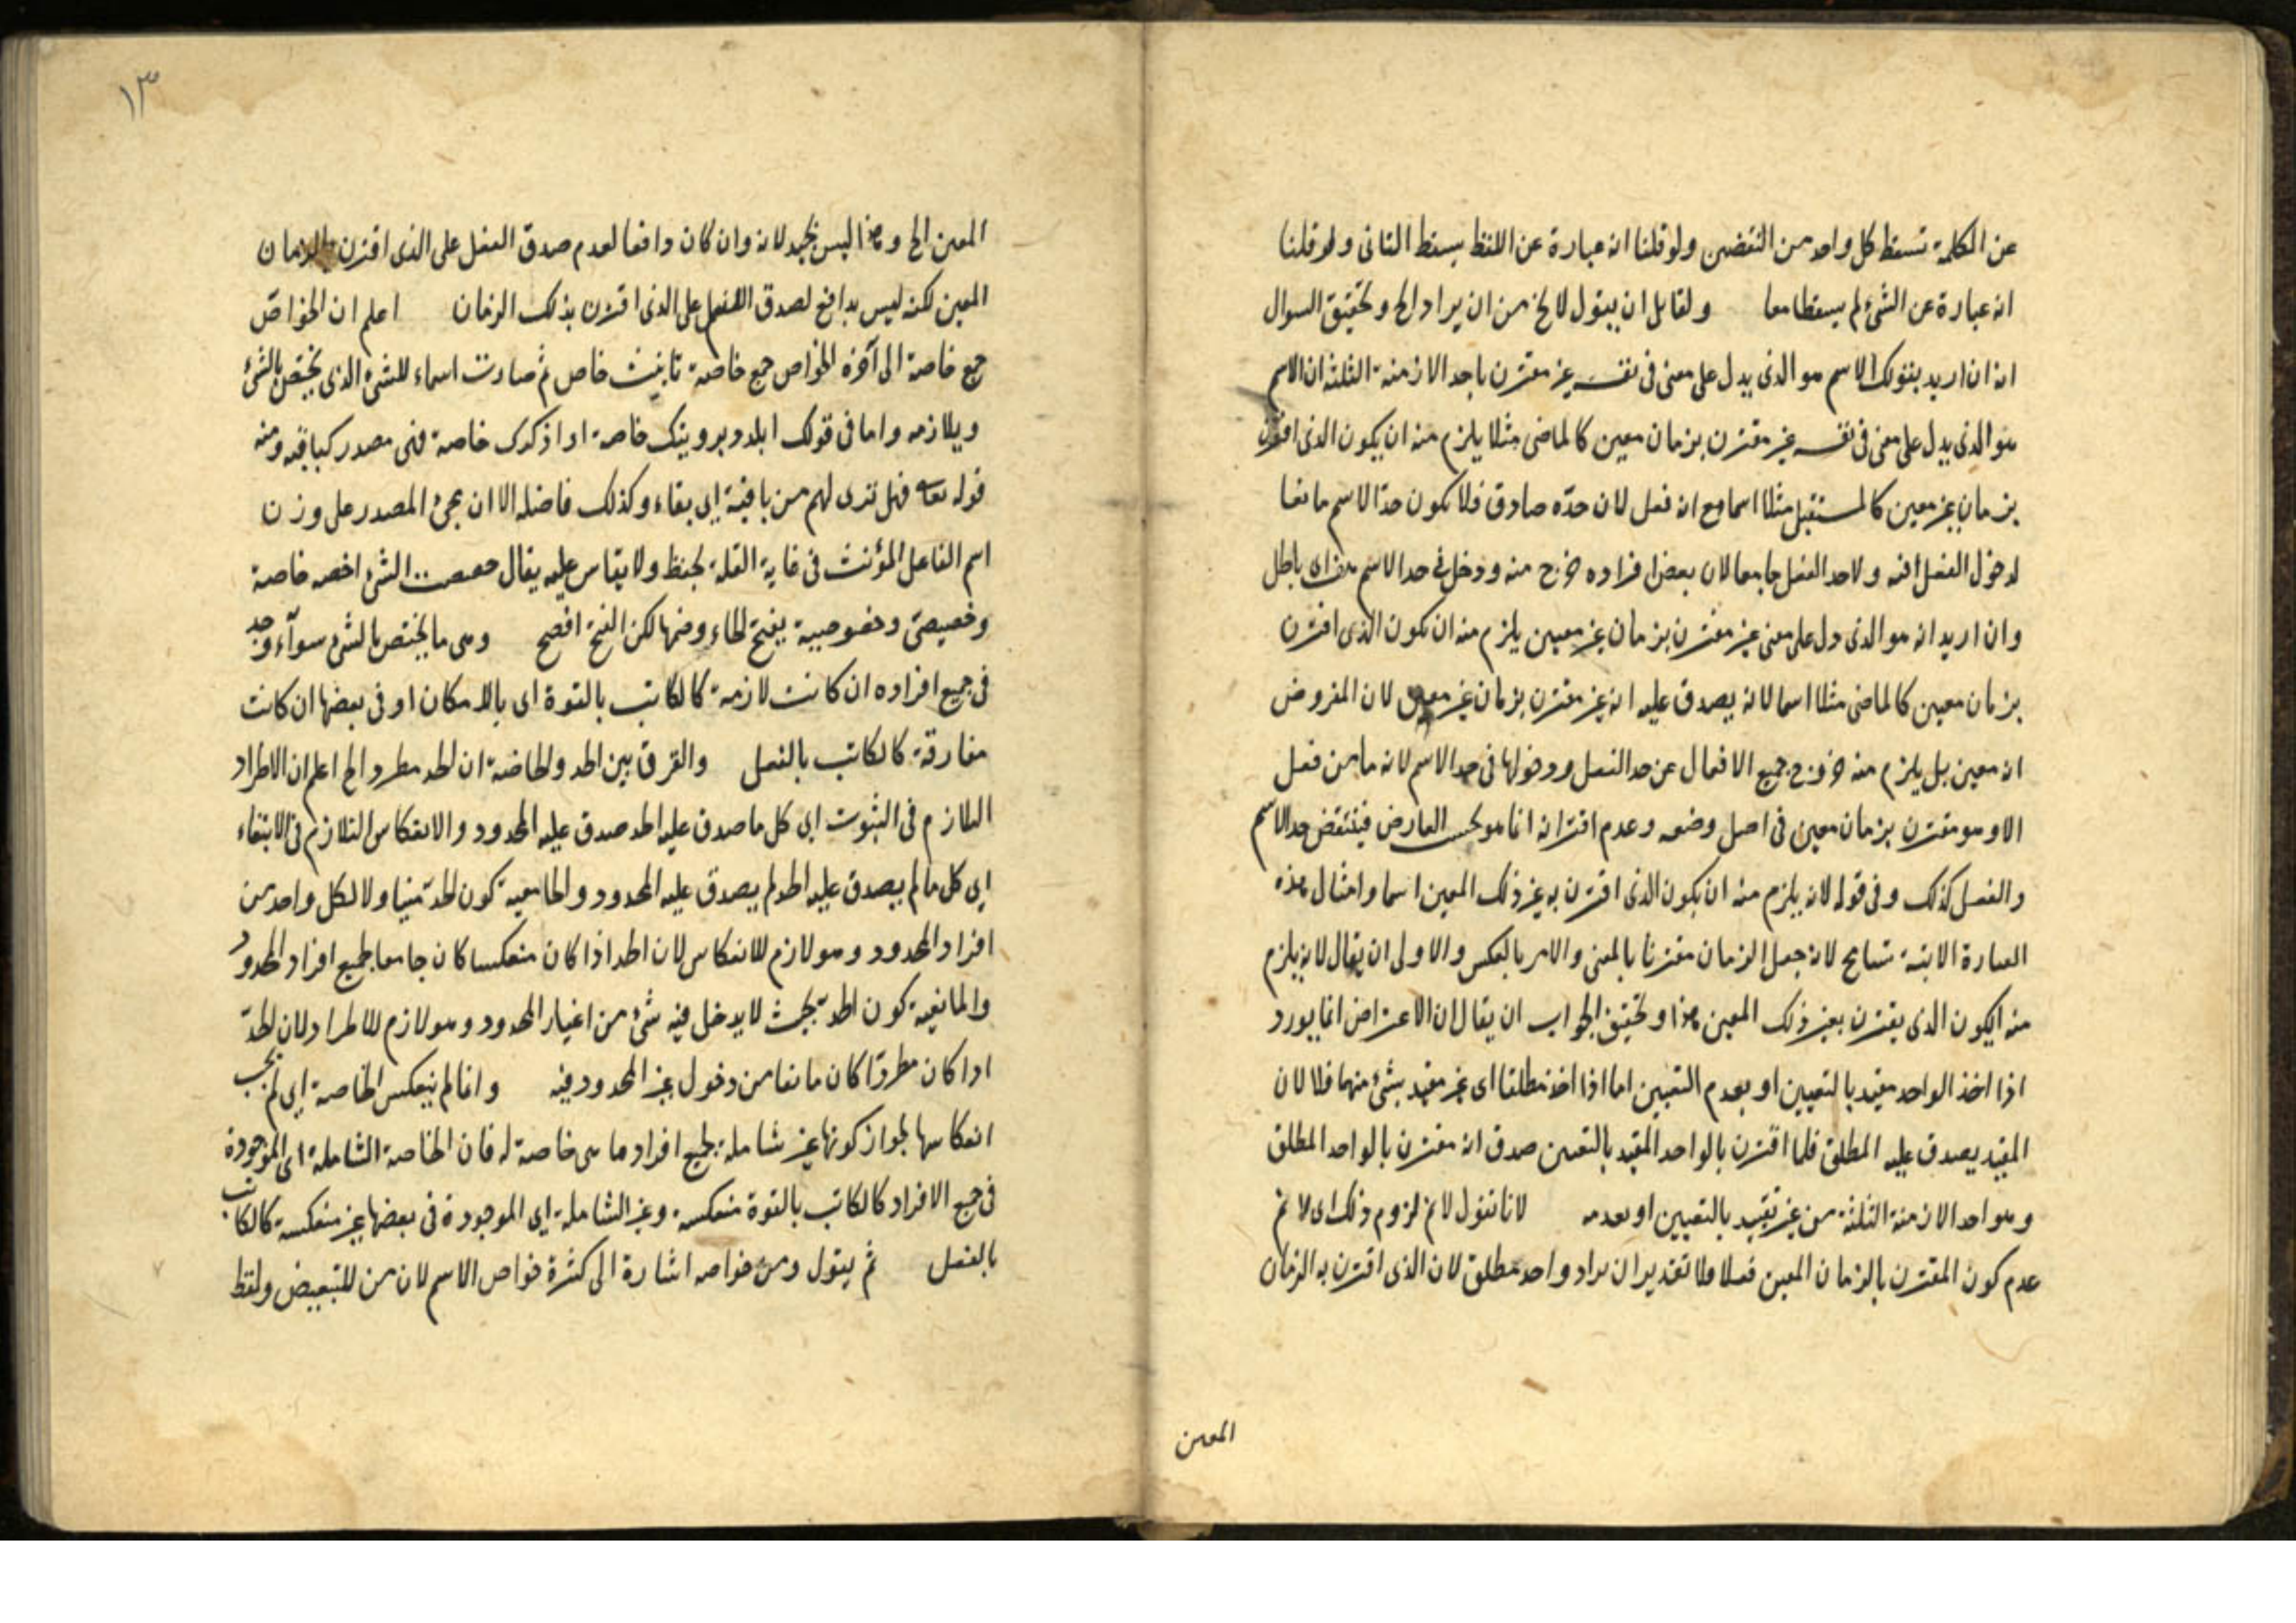 عن الكلمة تسقط كل واحد من النقضين ولو قلنا انه عبارة عن اللفظ يسقط الثاني ولو قلنا
انه عبارة عن الشئ لم يسقطا معا ولقايل ان يقول لا يخ من ان يراد الخ وتحقيق السوال
انه ان اريد بقولك الاسم هو الذي يدل على معنى في نفسه غير مقترن باحد الازمنة الثلثة ان الاسم
هو الذي يدل على معنى في نفسه غير مقترن بزمان معين كالماضي مثلا يلزم منه ان يكون الذي اقترن
بزمان غير معين كالمستقبل مثلا اسما مع انه فعل لان حدّه صادق فلا يكون حدّ الاسم مانعا
لدخول الفعل فيه ولا حد الفعل جامعا لان بعض افراده خرج منه ودخل في حد الاسم هف اي باطل
وان اريد انه هو الذي دل على معنى غير مقترن بزمان غير معين يلزم منه ان يكون الذي اقترن
بزمان معين كالماضي مثلا اسما لانه يصدق عليه انه غير مقترن بزمان غير معين لان المفروض
انه معين بل يلزم منه خروج جميع الافعال عن حد الفعل ودخولها في حد الاسم لانه ما من فعل
الا وهو مقترن بزمان معين في اصل وضعه وعدم اقترانه انما هو بحسب العارض فينتقض حد الاسم
والفعل كذلك وفي قوله لانه يلزم منه ان يكون الذي اقترن به غير ذلك المعين اسما وامثال هذه
العبارة الاتية تسامح لانه جعل الزمان مقترنا بالمعنى والامر بالعكس والاولى ان يقال لانه يلزم
منه ان يكون الذي يقترن بغير ذلك المعين هذا وتحقيق الجواب ان يقال ان الاعتراض انما يورد
اذا اخذ الواحد مقيد بالتعيين او بعدم التعيين اما اذا اخذ مطلقا اى غير مقيد بشئ منهما فلا لان
المقيد يصدق عليه المطلق فلما اقترن بالواحد المقيد بالتعين صدق انه مقترن بالواحد المطلق
وهو احد الازمنة الثلثة من غير تقييد بالتعيين او بعدمه لانا نقول لا نم لزوم ذلك اى لا نم
عدم كون المقترن بالزمان المعين فعلا فلا تقدير ان يراد واحد مطلق لان الذي اقترن به الزمان
المعين
١٣
المعين الخ وهذا ليس بجيد لانه وان كان دافعا لعدم صدق الفعل على الذي اقترن بالزمان
المعين لكنه ليس بدافع لصدق الفعل على الذي اقترن بذلك الزمان اعلم ان الخواصّ
جمع خاصة الى آخره الخواص جمع خاصة تانيث خاص ثم صارت اسماء للشئ الذي يختص بالشئ
ويلازمه واما في قولك خاصة فهى مصدر كباقيه ومنه
قوله تعالى فهل ترى لهم من باقية اى بقاء وكذلك فاضلة الا ان مجئ المصدر على وزن
اسم الفاعل المؤنث في غاية القلة يحفظ ولا يقاس عليه يقال خصصت الشئ اخصه خاصة
وخصيصى وخصوصية بفتح الخاء وضمها لكن الفتح افصح وهى ما يختص بالشئ سوآء وجد
في جميع افراده ان كانت لازمة كالكاتب بالقوة اى بالامكان او في بعضها ان كانت
مفارقة كالكاتب بالفعل والفرق بين الحد والخاصة ان الحد مطرد الخ اعلم ان الاطراد
التلازم في الثبوت اى كل ما صدق عليه الحد صدق عليه المحدود والانعكاس التلازم في الانتفاء
اى كل ما لم يصدق عليه الحد لم يصدق عليه المحدود والجامعية كون الحدّ متناولا لكل واحد من
افراد المحدود وهو لازم للانعكاس لان الحد اذا كان منعكسا كان جامعا لجميع افراد المحدود
والمانعية كون الحد بحيث لا يدخل فيه شئ من اغيار المحدود وهو لازم للاطراد لان الحدّ
اذا كان مطردّا كان مانعا من دخول غير المحدود فيه وانما لم ينعكس الخاصة اى لم يجب
انعكاسها لجواز كونها غير شاملة لجميع افراد ما هى خاصة له فان الخاصة الشاملة اى الموجودة
في جميع الافراد كالكاتب بالقوة منعكسة وغير الشاملة اى الموجودة في بعضها غير منعكسة كالكاتب
بالفعل ثم يقول ومن خواصه اشارة الى كثرة خواص الاسم لان من للتبعيض ولفظ